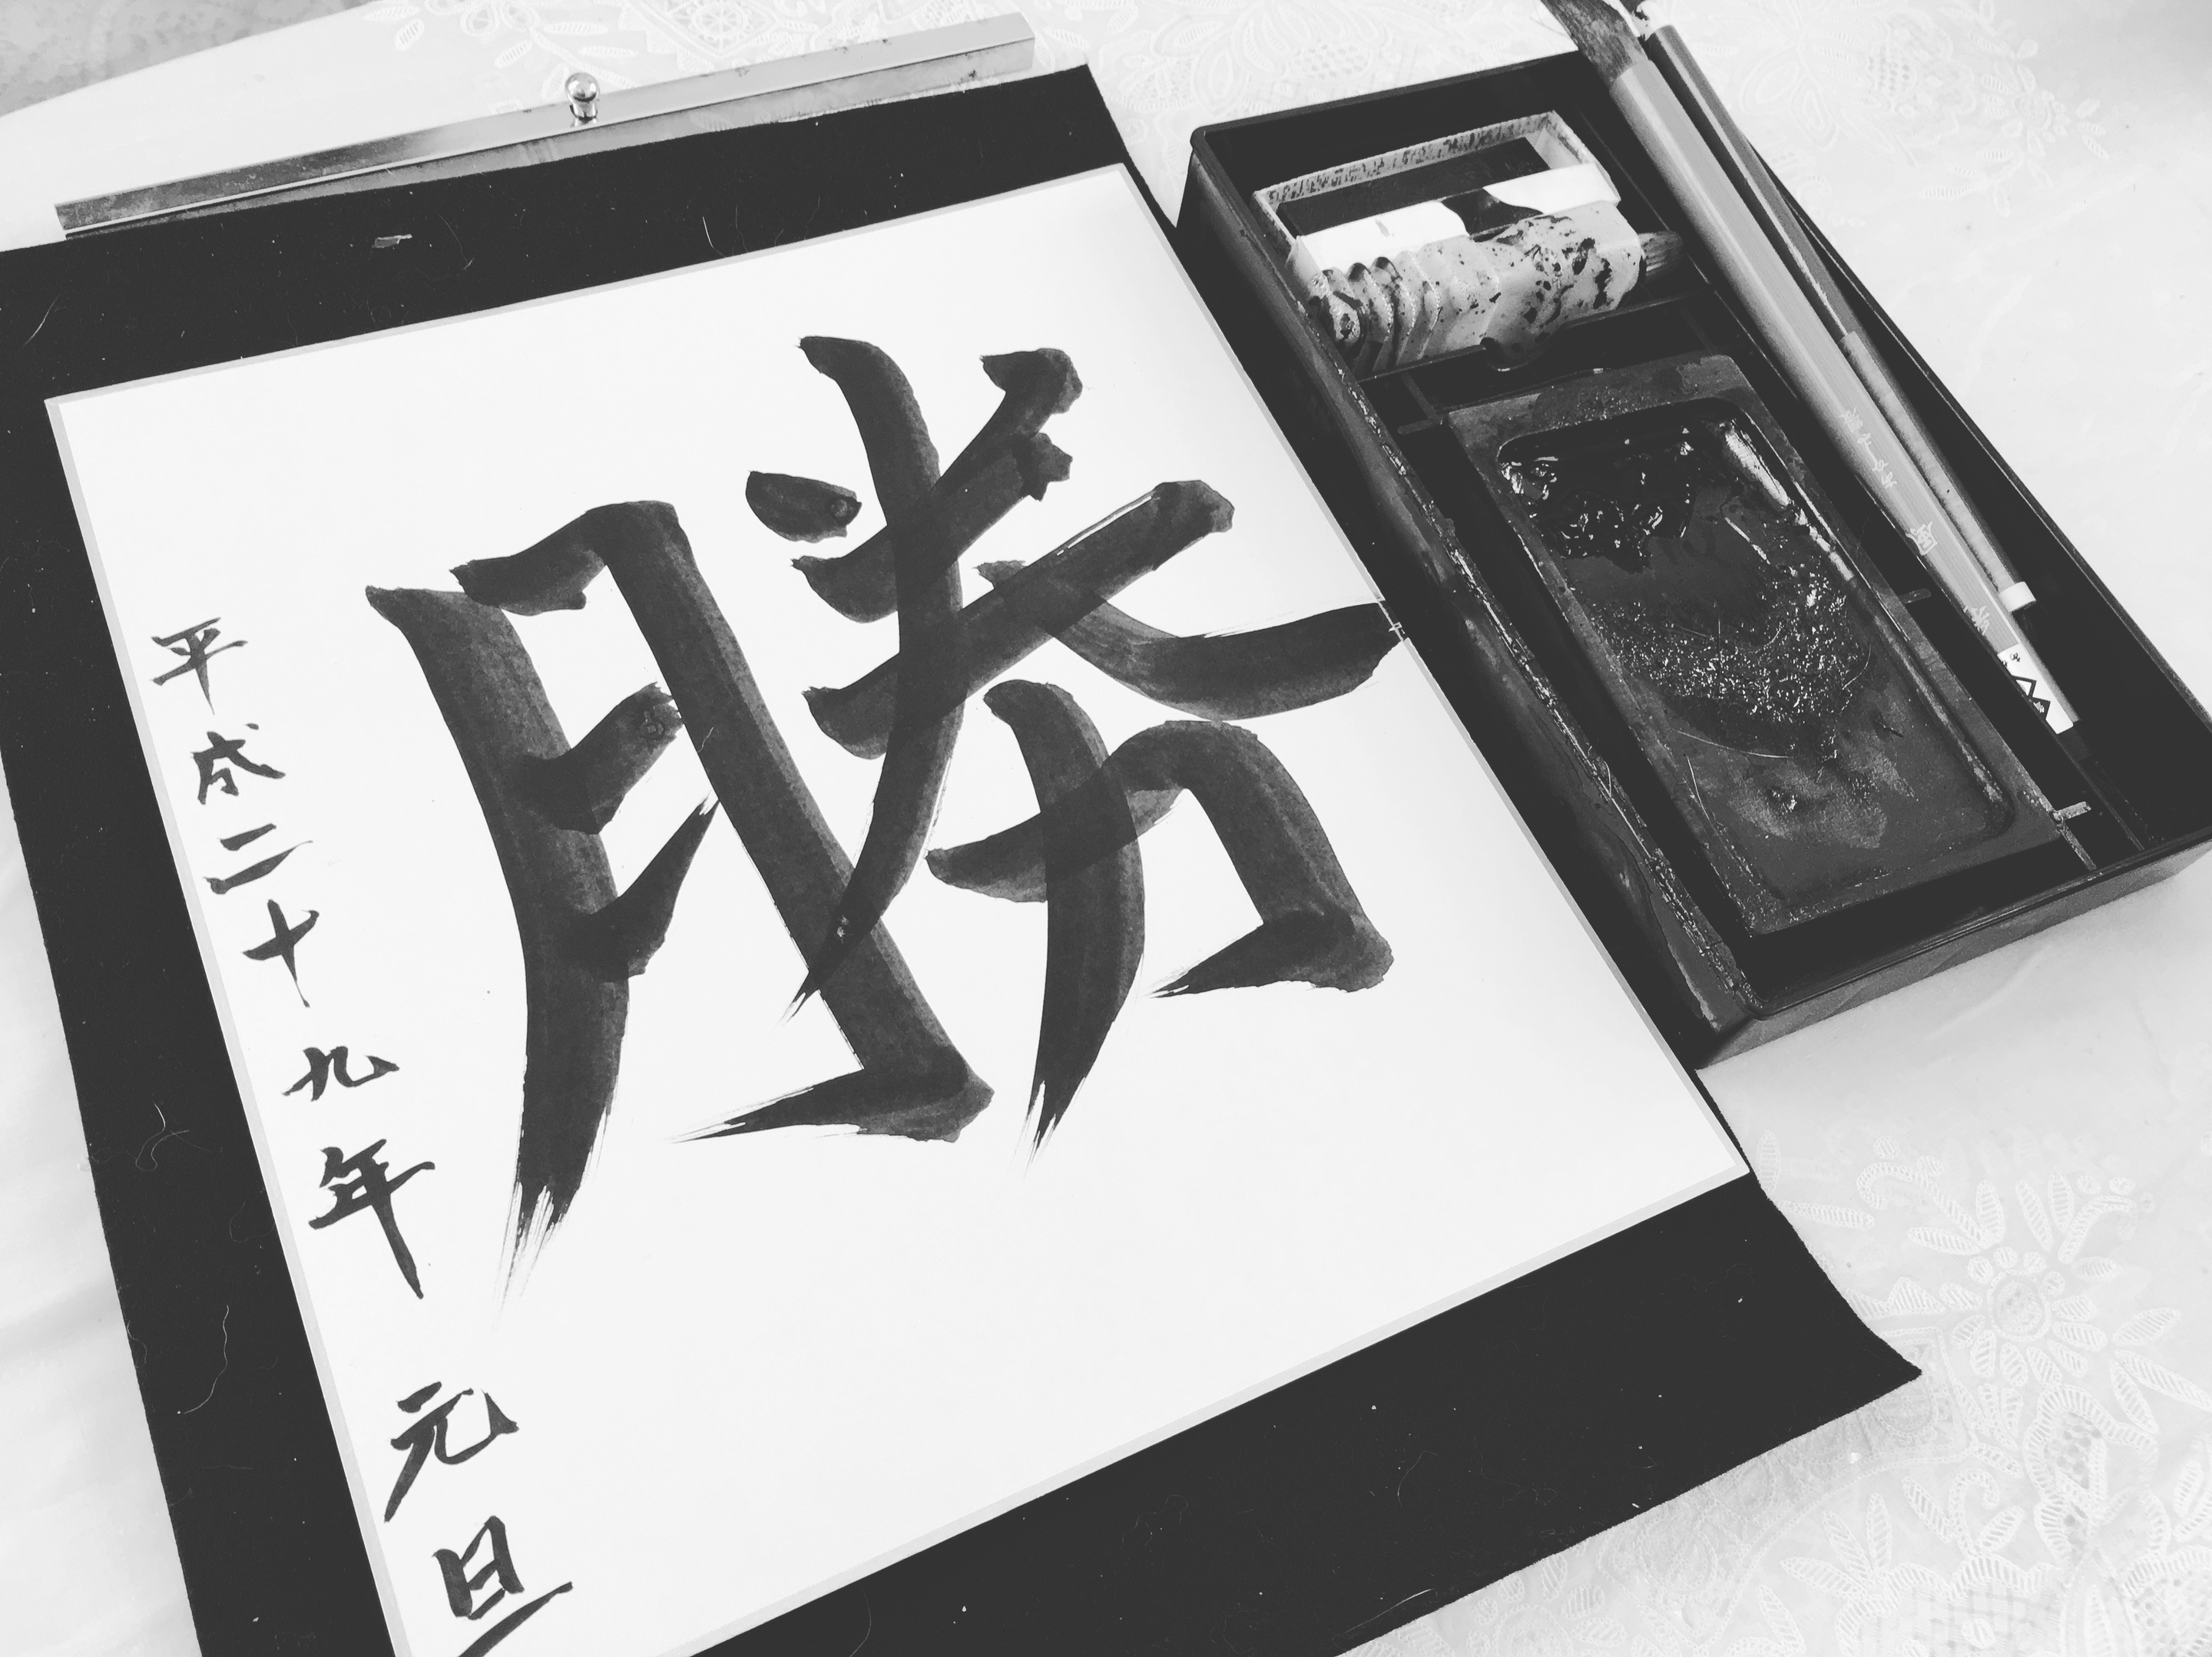 勝
平成二十九年 元旦